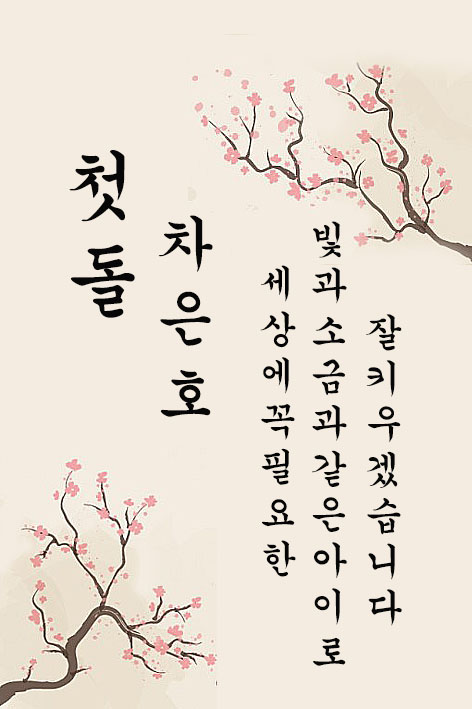 첫돌
차은호
세상에꼭필요한
빛과소금과같은아이로
잘키우겠습니다